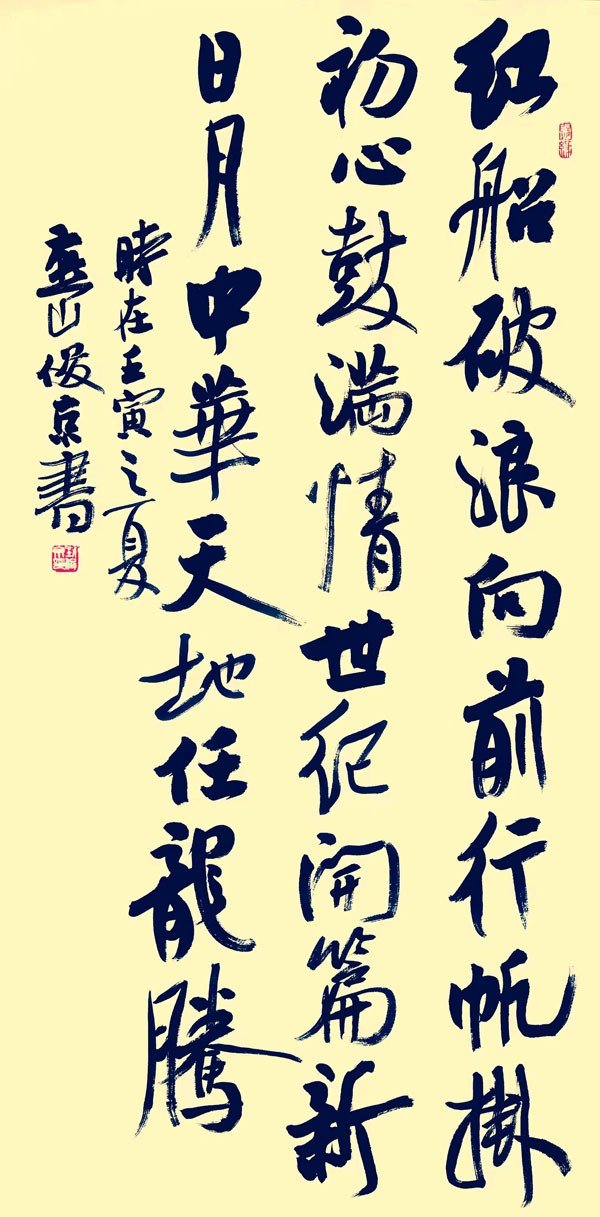 红船破浪向前行帆掛
初心鼓满情世纪开篇新
日月中華天地任龍騰
時在壬寅之夏
山俊京書